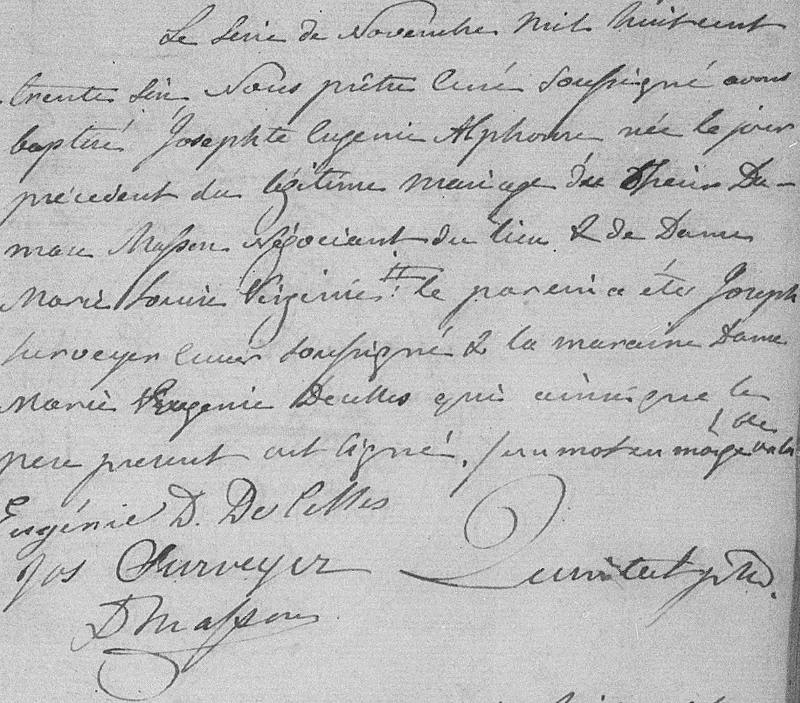 Le seize de Novembre mil huit cent
trente six Nous prêtre curé soussigné avons
baptisé Josephte Eugenie Alphonsine née le jour
précédent du légitime mariage du Sieur Da-
mase Masson Négociant du lieu & de Dame
Marie Louise Virginie le parein a été Joseph
Surveyer soussigné & la maraine Dame
Marie Eugenie Decelles qui ainsi que le
pere present ont signé. / un mot en marge
Eugénie D. De Celles
Jos Surveyer Quintal ptre.
D Masson